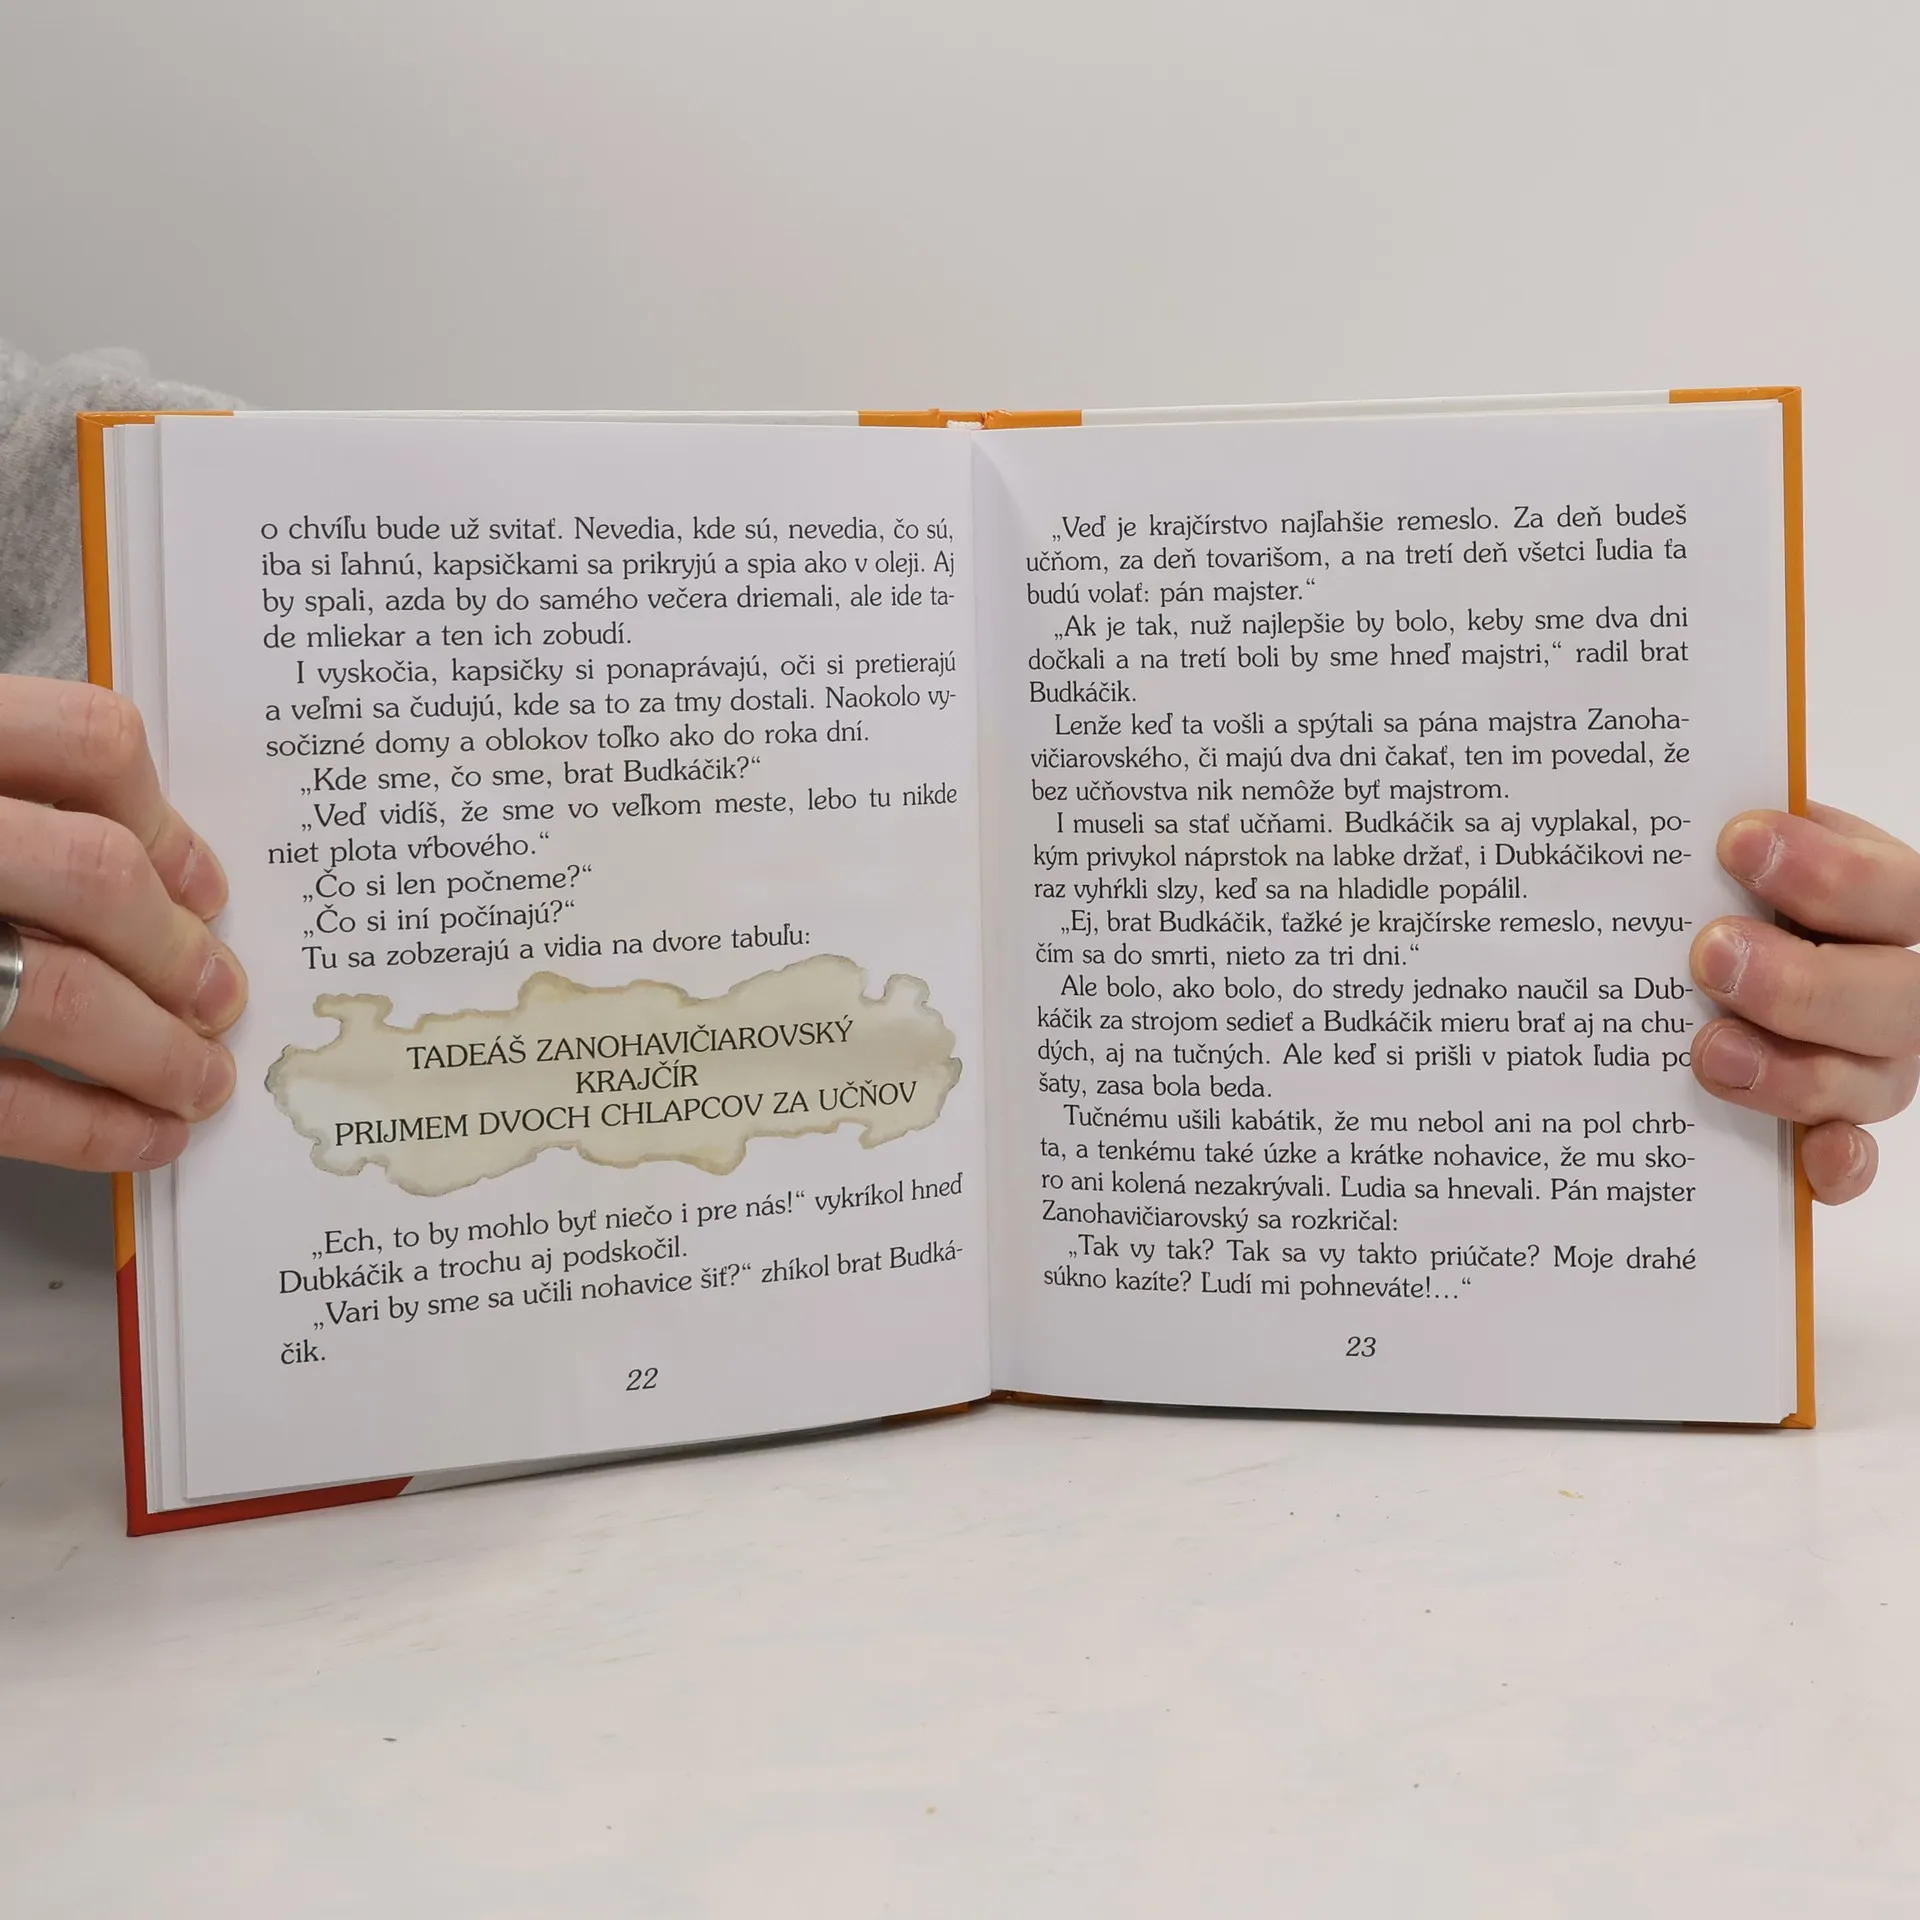 o chvíľu bude už svitať. Nevedia, kde sú, nevedia, čo sú,
iba si ľahnú, kapsičkami sa prikryjú a spia ako v oleji. Aj
by spali, azda by do samého večera driemali, ale ide ta-
de mliekar a ten ich zobudí.
I vyskočia, kapsičky si ponaprávajú, oči si pretierajú
a veľmi sa čudujú, kde sa to za tmy dostali. Naokolo vy-
sočizné domy a oblokov toľko ako do roka dní.
„Kde sme, čo sme, brat Budkáčik?“
„Veď vidíš, že sme vo veľkom meste, lebo tu nikde
niet plota vŕbového.“
„Čo si len počneme?“
„Čo si iní počínajú?“
Tu sa zobzerajú a vidia na dvore tabuľu:
TADEÁŠ ZANOHAVIČIAROVSKÝ
KRAJČÍR
PRIJMEM DVOCH CHLAPCOV ZA UČŇOV
„Ech, to by mohlo byť niečo i pre nás!“ vykríkol hneď
Dubkáčik a trochu aj podskočil.
„Vari by sme sa učili nohavice šiť?“ zhíkol brat Budká-
čik.
22
„Veď je krajčírstvo najľahšie remeslo. Za deň budeš
učňom, za deň tovarišom, a na tretí deň všetci ľudia ťa
budú volať: pán majster.“
„Ak je tak, nuž najlepšie by bolo, keby sme dva dni
dočkali a na tretí boli by sme hneď majstri,“ radil brat
Budkáčik.
Lenže keď ta vošli a spýtali sa pána majstra Zanoha-
vičiarovského, či majú dva dni čakať, ten im povedal, že
bez učňovstva nik nemôže byť majstrom.
I museli sa stať učňami. Budkáčik sa aj vyplakal, po-
kým privykol náprstok na labke držať, i Dubkáčikovi ne-
raz vyhŕkli slzy, keď sa na hladidle popálil.
„Ej, brat Budkáčik, ťažké je krajčírske remeslo, nevyu-
čím sa do smrti, nieto za tri dni.“
Ale bolo, ako bolo, do stredy jednako naučil sa Dub-
káčik za strojom sedieť a Budkáčik mieru brať aj na chu-
dých, aj na tučných. Ale keď si prišli v piatok ľudia po
šaty, zasa bola beda.
Tučnému ušili kabátik, že mu nebol ani na pol chrb-
ta, a tenkému také úzke a krátke nohavice, že mu sko-
ro ani kolená nezakrývali. Ľudia sa hnevali. Pán majster
Zanohavičiarovský sa rozkričal:
„Tak vy tak? Tak sa vy takto priúčate? Moje drahé
súkno kazíte? Ľudí mi pohneváte!...“
23